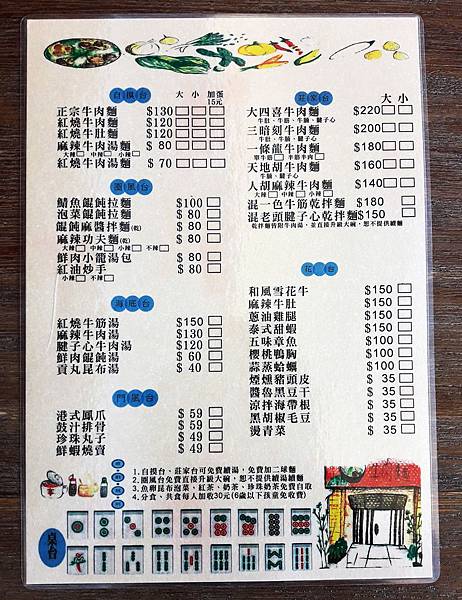 自摸台 大 小 加蛋15元
正宗牛肉麵 $130
紅燒牛肉麵 $120
紅燒牛肚麵 $120
麻辣牛肉湯麵 $ 80
大辣 中辣 小辣
紅燒牛肉湯麵 $ 70
圈風台
鯖魚餛飩拉麵 $100
泡菜餛飩拉麵 $ 80
餛飩麻醬拌麵(乾) $ 80
麻辣功夫麵(乾) $ 80
大辣 中辣 小辣 不辣
鮮肉小籠湯包 $ 80
紅油炒手 $ 80
小辣 不辣
海底台
紅燒牛筋湯 $150
麻辣牛肉湯 $130
腱子心牛肉湯 $120
鮮肉餛飩湯 $ 60
貢丸昆布湯 $ 40
門風台
港式鳳爪 $ 59
鼓汁排骨 $ 59
珍珠丸子 $ 49
鮮蝦燒賣 $ 49
莊家台 大 小
大四喜牛肉麵 $220
牛肚、牛筋、牛腩、腱子心
三暗刻牛肉麵 $200
牛肚、牛筋、腱子心
一條龍牛肉麵 $180
單牛筋 半筋半肉
天地胡牛肉麵 $160
牛腩、腱子心
人胡麻辣牛肉麵 $140
大辣 中辣 小辣
混一色牛筋乾拌麵 $180
混老頭腱子心乾拌麵 $150
乾拌麵皆附牛肉湯，並直接升級大碗，恕不提供續麵
花 台
和風雪花牛 $150
麻辣牛肚 $150
蔥油雞腿 $150
泰式甜蝦 $150
五味章魚 $100
櫻桃鴨胸 $100
蒜蒸蛤蠣 $100
煙燻豬頭皮 $ 35
醬魯黑豆干 $ 35
涼拌海帶根 $ 35
黑胡椒毛豆 $ 35
燙青菜 $ 35
1.自摸台、莊家台可免費續湯，免費加二球麵
2.圈風台免費直接升級大碗，恕不提供續湯續麵
3.魚卵昆布泡菜、紅茶、奶茶、珍珠奶茶免費自取
4.分食、共食每人加收30元(6歲以下孩童免收費)
桌台